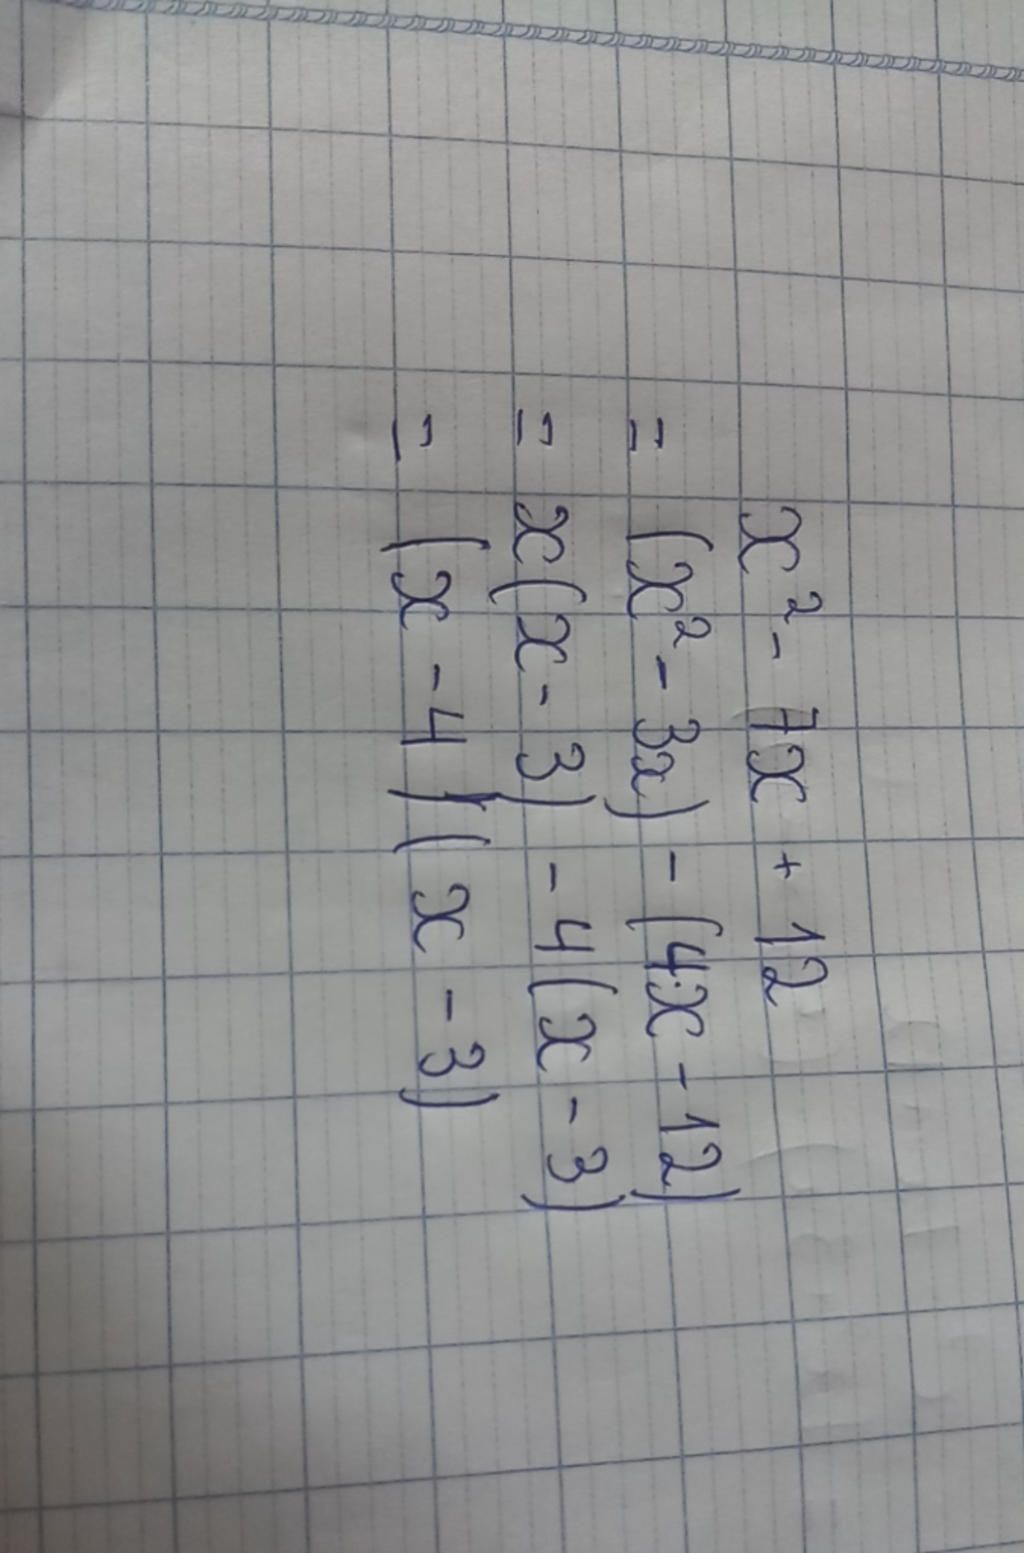 x² - 7x + 12
= (x² - 3x) - (4x - 12)
= x(x - 3) - 4(x - 3)
= (x - 4)(x - 3)